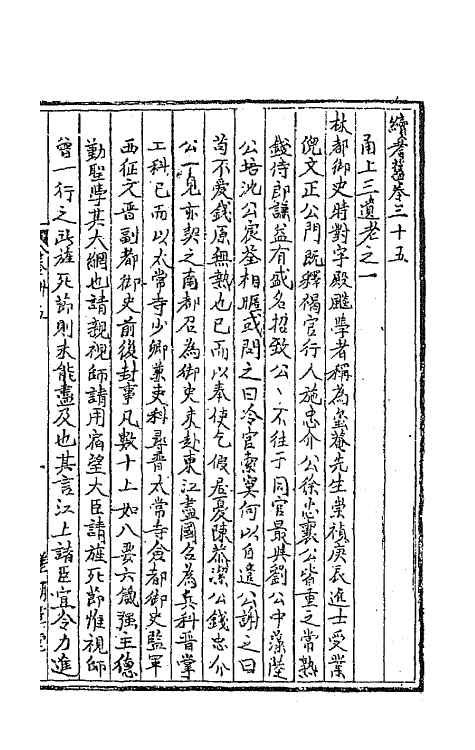 續耆舊卷三十五
甬上三遺老之一
林都御史時對字殿颺學者稱為蠒菴先生崇禎庚辰進士受業
倪文正公門既釋褐官行人施忠介公徐忠襄公皆重之常熟
錢侍郎謙益有盛名招致公丶不往于同官最與劉公中藻陸
公培沈公宸荃相暱或問之曰冷官索寞何以自遣公謝之曰
苟不愛錢原無熱也已而以奉使乞假居憂陳恭潔公錢忠介
公一見亦契之南都召為御史未赴東江盡國召為兵科晉掌
工科已而以太常寺少卿兼吏科尋晉太常寺僉都御史監軍
西征又晉副都御史前後封事凡數十上如八要六箴強主德
勤聖學其大綱也請親視師請用宿望大臣請旌死節惟視師
曾一行之旌死節則未能盡及也其言江上諸臣宜令力進
卷卅五